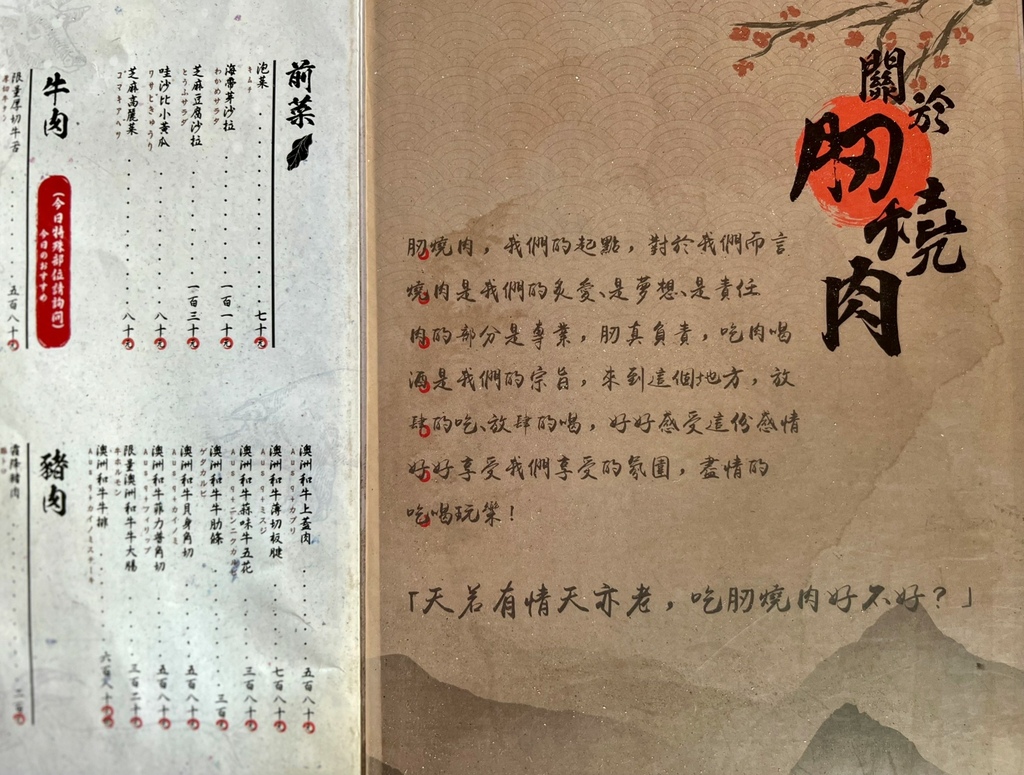 關於
肕燒肉
肕燒肉，我們的起點，對於我們而言
燒肉是我們的炙愛、是夢想、是責任
肉的部分是專業，肕真負責，吃肉喝
酒是我們的宗旨，來到這個地方，放
肆的吃、放肆的喝，好好感受這份感情
好好享受我們享受的氛圍，盡情的
吃喝玩樂！
「天若有情天亦老，吃肕燒肉好不好？」
前菜
泡菜 七十元
キムチ
海帶芽沙拉 一百一十元
わかめサラダ
芝麻豆腐沙拉 一百三十元
とうふサラダ
哇沙比小黃瓜 八十元
ワサビきゅうり
芝麻高麗菜 八十元
ゴマキャベツ
牛肉
（今日特殊部位請詢問）
今日のおすすめ
限量厚切牛舌 五百八十元
澳洲和牛上蓋肉 五百八十元
澳洲和牛薄切板腱 七百八十元
澳洲和牛蒜味牛五花 三百八十元
澳洲和牛牛肋條 三百
ゲタカルビ
澳洲和牛貝身角切 五百八十元
澳洲和牛菲力普角切 五百八十元
限量澳洲和牛牛大腸 三百二十元
澳洲和牛牛排 六百八十元
豬肉
霜降豬肉